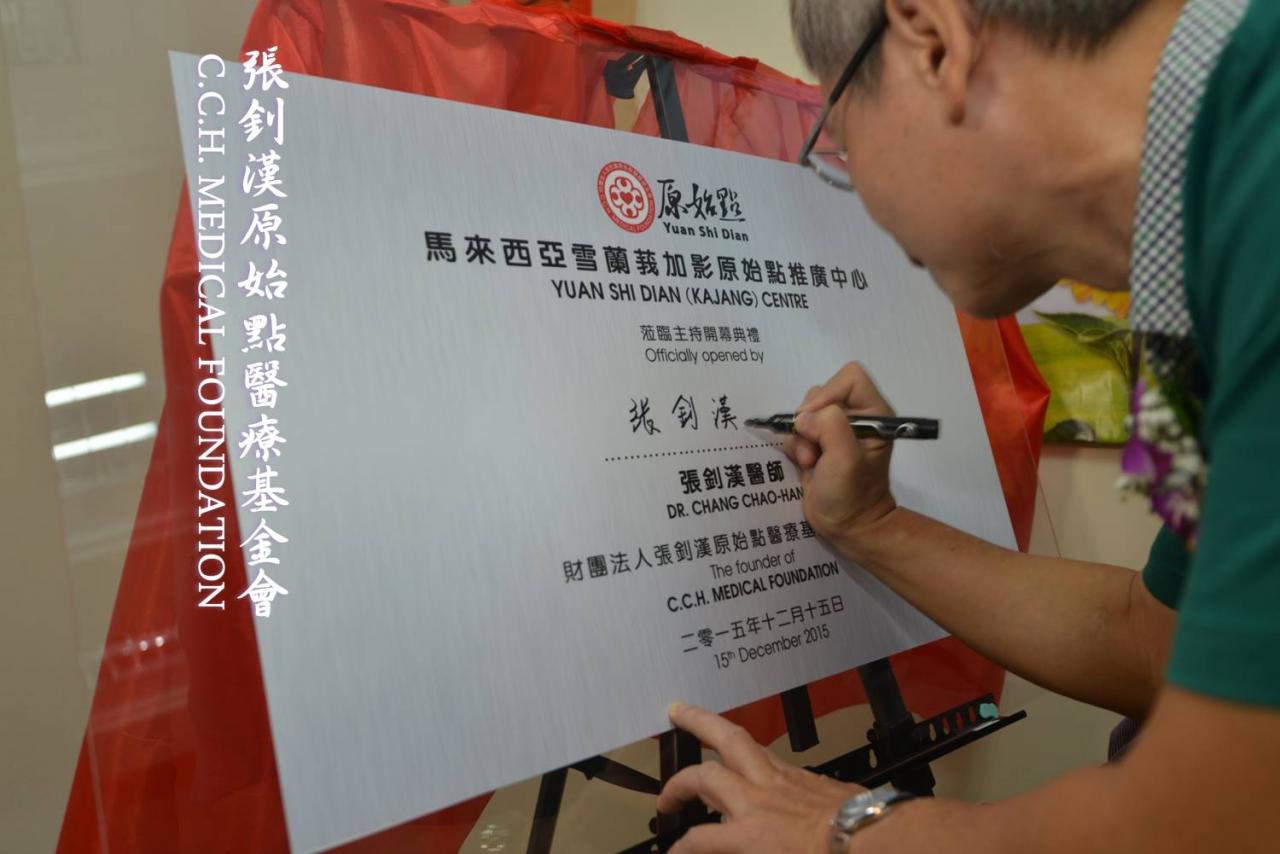 張釗漢原始點醫療基金會
C.C.H. MEDICAL FOUNDATION
原始點
Yuan Shi Dian
馬來西亞雪蘭莪加影原始點推廣中心
YUAN SHI DIAN (KAJANG) CENTRE
蒞臨主持開幕典禮
Officially opened by
張釗漢
張釗漢醫師
DR. CHANG CHAO-HAN
財團法人張釗漢原始點醫療基
The founder of
C.C.H. MEDICAL FOUNDATION
二零一五年十二月十五日
15th December 2015